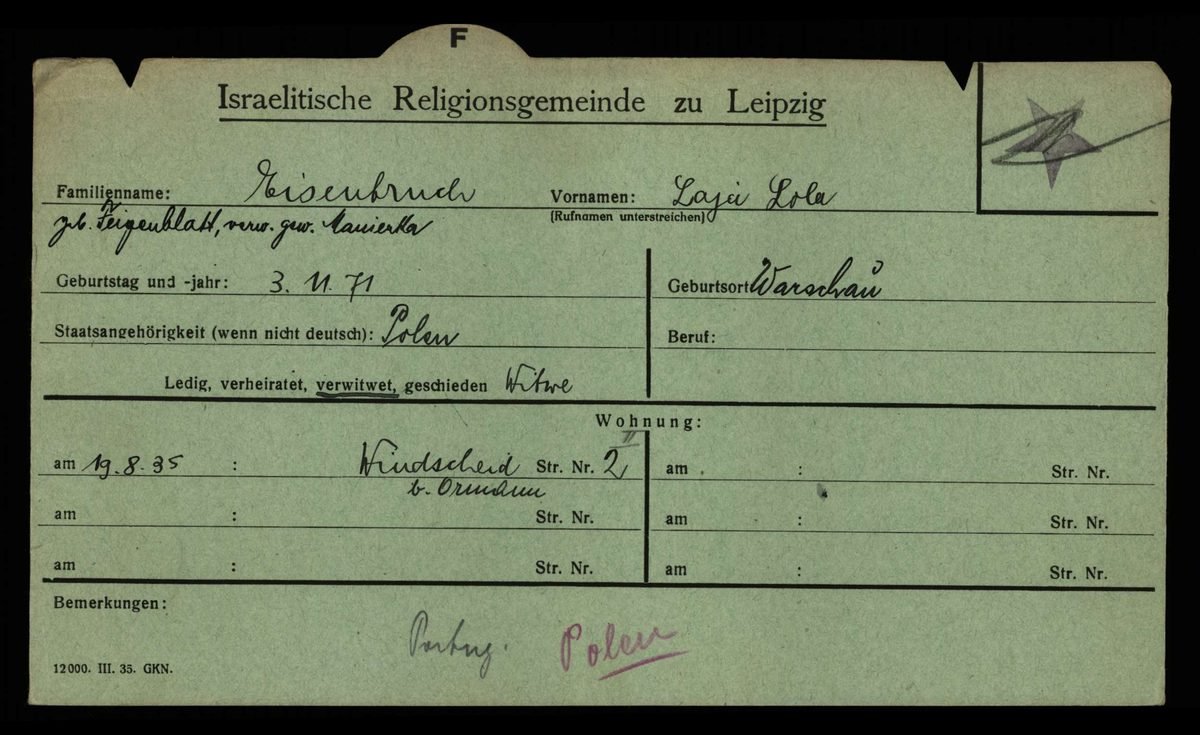 F
Israelitische Religionsgemeinde zu Leipzig
Familienname: Eisenbruch Vornamen: Laja Lola
(Rufnamen unterstreichen)
geb. Feigenblatt, verw. gew. Manierka
Geburtstag und -jahr: 3. 11. 71 Geburtsort Warschau
Staatsangehörigkeit (wenn nicht deutsch): Polen Beruf:
Ledig, verheiratet, verwitwet, geschieden Witwe
Wohnung:
am 19.8.35 : Windscheid Str. Nr. 2 II am : Str. Nr.
b. Ormann
am : Str. Nr. am : Str. Nr.
am : Str. Nr. am : Str. Nr.
Bemerkungen:
Polen
12000. III. 35. GKN.